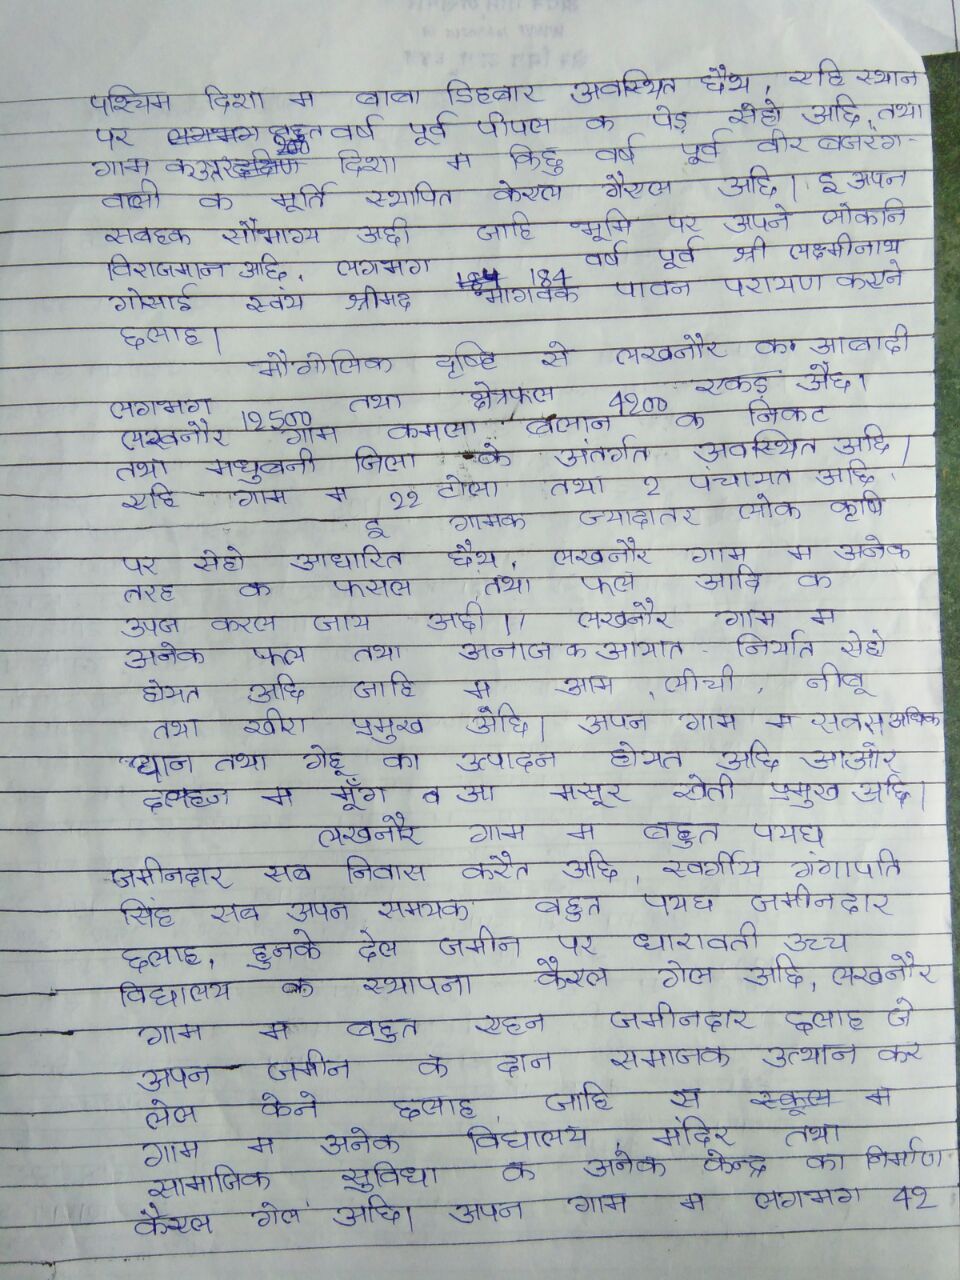 पश्चिम दिशा म बाबा डिहबार अवस्थित छैथ, एहि स्थान
पर लगभग 200 वर्ष पूर्व पीपल क पेड़ सेहो अछि, तथा
गाम क उत्तर दिशा म किछु वर्ष पूर्व वीर बजरंग-
वली क मूर्ति स्थापित केएल गैएल अछि। इ अपन
सबहक सौभाग्य अछी जाहि भूमि पर अपने लोकनि
विराजमान अछि, लगभग 184 वर्ष पूर्व श्री लक्ष्मीनाथ
गोसाई स्वंय श्रीमद भागवक पावन परायण कएने
छलाह।
भौगोलिक दृष्टि से लखनौर क आबादी
लगभग 12500 तथा क्षेत्रफल 4200 एकड़ अैछ।
लखनौर गाम कमला बलान क निकट
तथा मधुबनी जिला के अंतर्गत अवस्थित अछि।
एहि गाम म 22 टोला तथा 2 पंचायत अछि,
इ गामक ज्यादातर लोक कृषि
पर सेहो आधारित छैथ, लखनौर गाम म अनेक
तरह क फसल तथा फल आदि क
उपज करल जाय अछी।। लखनौर गाम म
अनेक फल तथा अनाज क आयात - निर्यात सेहो
होयत अछि जाहि म आम, लीची, नीबू
तथा खीरा प्रमुख अैछि। अपन गाम म सबस अधिक
धान तथा गेहू का उत्पादन होयत अछि आओर
दलहन म मूँग व आ मसूर खेती प्रमुख अछि।
लखनौर गाम म बहुत पयघ
जमीनदार सब निवास करैत अछि, स्वर्गीय गंगापति
सिंह सब अपन समयक बहुत पयघ जमीनदार
छलाह, हुनके देल जमीन पर धारावती उच्च
विद्यालय क स्थापना कैएल गेल अछि, लखनौर
गाम म बहुत एहन जमीनदार छलाह जे
अपन जमीन क दान समाजक उत्थान कर
लेल केने छलाह, जाहि स स्कूल म
गाम म अनेक विद्यालय, मंदिर तथा
सामाजिक सुविधा क अनेक केन्द्र का निर्माण
कैएल गेल अछि। अपन गाम म लगभग 42